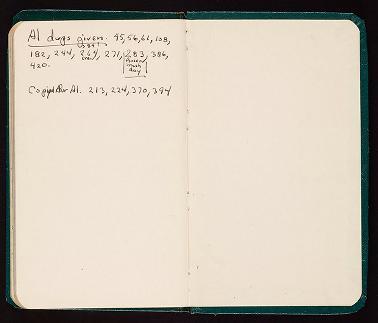 Al dugs given. 45, 56, 61, 108,
182, 244, 264, 271, 283, 386,
420.
Copied for Al. 213, 224, 370, 394